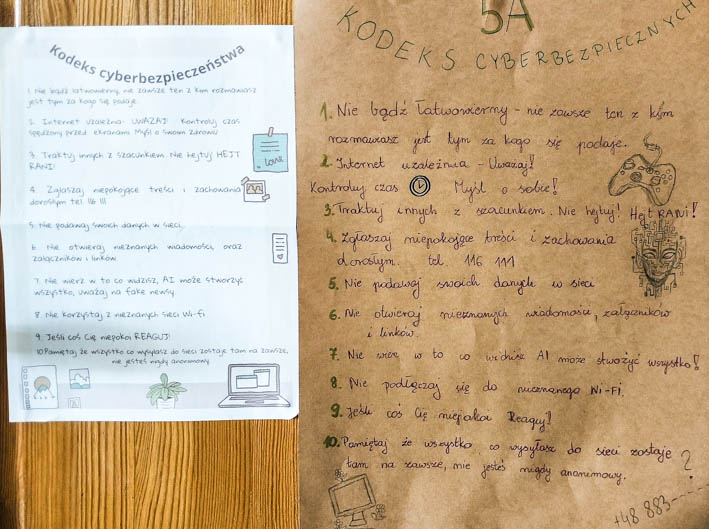 Kodeks cyberbezpieczeństwa
1. Nie bądź łatwowierny, nie zawsze ten z kim rozmawiasz
jest tym za kogo się podaje.
2. Internet uzależnia. UWAŻAJ! Kontroluj czas
spędzony przed ekranami Myśl o swoim zdrowiu
3. Traktuj innych z szacunkiem. Nie hejtuj! HEJT
RANI!
4. Zgłaszaj niepokojące treści i zachowania
dorosłym tel. 116 111
5. Nie podawaj swoich danych w sieci.
6. Nie otwieraj nieznanych wiadomości, oraz
załączników i linków.
7. Nie wierz w to co widzisz, AI może stworzyć
wszystko, uważaj na fake newsy.
8. Nie korzystaj z nieznanych sieci Wi-fi
9. Jeśli coś Cię niepokoi REAGUJ!
10. Pamiętaj że wszystko co wysyłasz do sieci zostaje tam na zawsze,
nie jesteś nigdy anonimowy.
Love
5A
KODEKS CYBERBEZPIECZNYCH
1. Nie bądź łatwowierny - nie zawsze ten z kim
rozmawiasz jest tym za kogo się podaje.
2. Internet uzależnia - Uważaj!
Kontroluj czas Myśl o sobie!
3. Traktuj innych z szacunkiem. Nie hejtuj! Hejt RANI!
4. Zgłaszaj niepokojące treści i zachowania
dorosłym. tel 116 111
5. Nie podawaj swoich danych w sieci
6. Nie otwieraj nieznanych wiadomości, załączników
i linków.
7. Nie wierz w to co widzisz AI może stwożyć wszystko!
8. Nie podłączaj się do nieznanego Wi-Fi.
9. Jeśli coś Cię niepokoi Reaguj!
10. Pamiętaj że wszystko, co wysyłasz do sieci zostaje
tam na zawsze, nie jesteś nigdy anonimowy.
?
+48 883-----